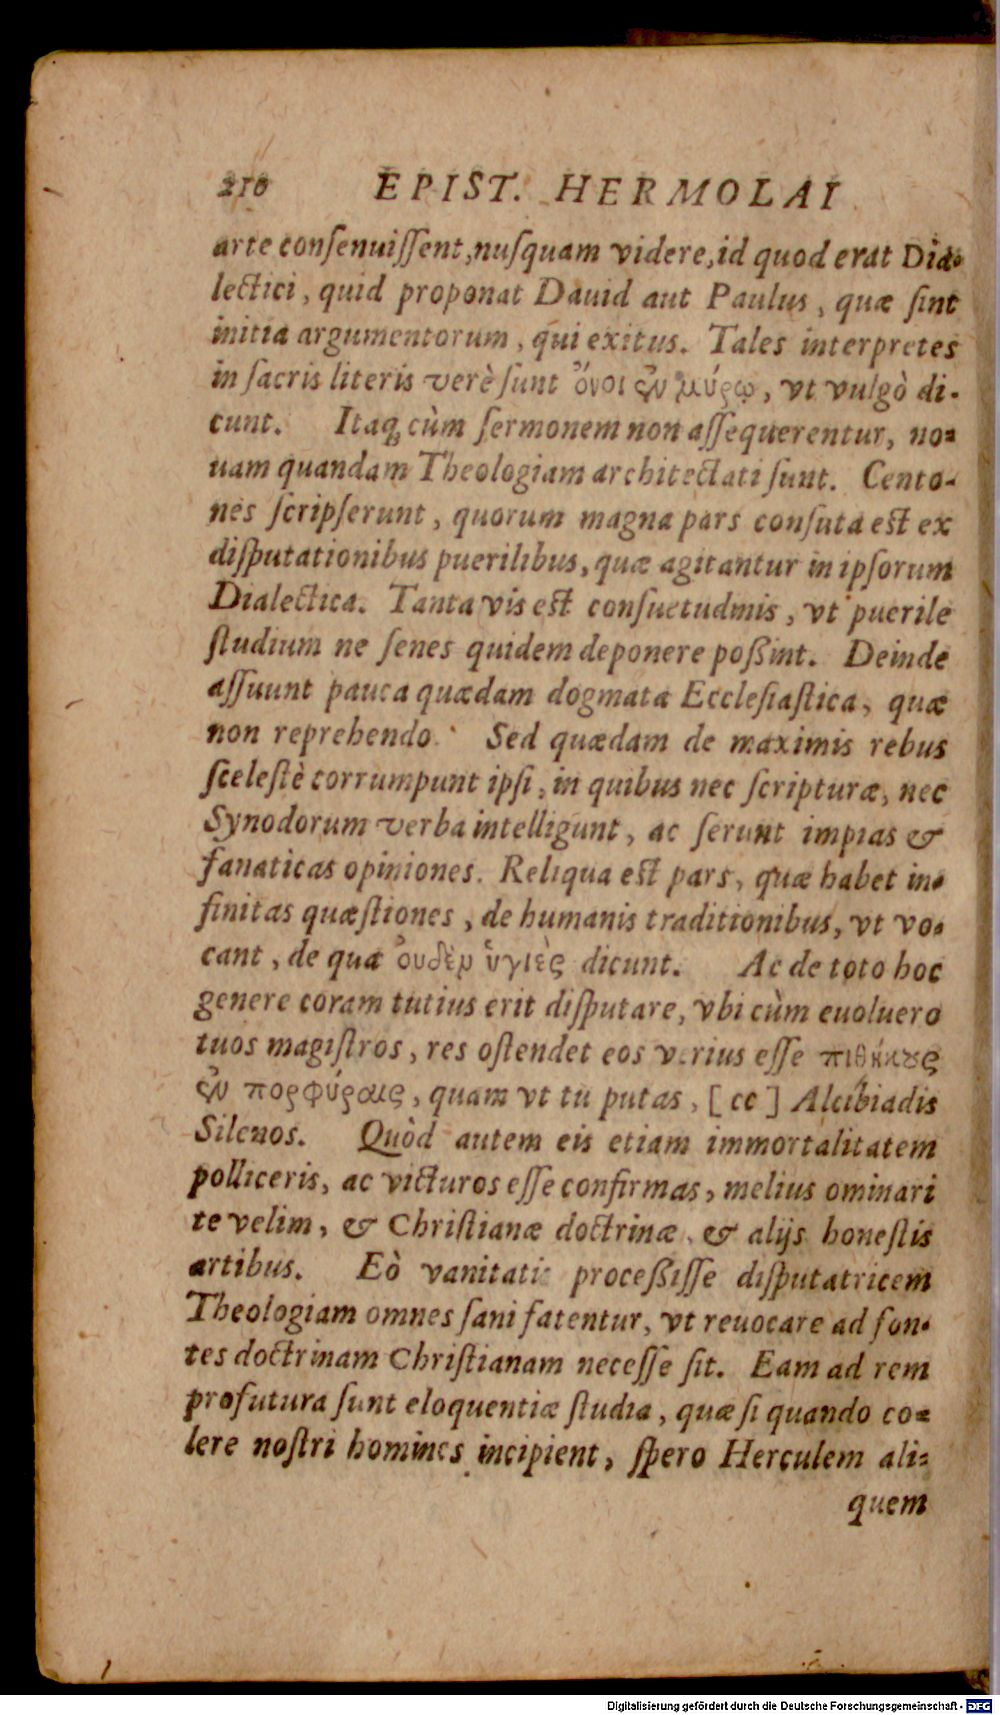 210 EPIST. HERMOLAI
arte conſenuiſſent, nuſquam videre, id quod erat Dia-
lectici, quid proponat Dauid aut Paulus, quæ ſint
initia argumentorum, qui exitus. Tales interpretes
in ſacris literis verè ſunt ὄνοι ἐν μύρῳ, vt vulgò di-
cunt. Itaq; cùm ſermonem non aſſequerentur, no-
uam quandam Theologiam architectati ſunt. Cento-
nes ſcripſerunt, quorum magna pars conſuta est ex
diſputationibus puerilibus, quæ agitantur in ipſorum
Dialectica. Tanta vis est conſuetudinis, vt puerile
ſtudium ne ſenes quidem deponere poßint. Deinde
aſſuunt pauca quædam dogmata Eccleſiaſtica, quæ
non reprehendo. Sed quædam de maximis rebus
ſceleſtè corrumpunt ipſi, in quibus nec ſcripturæ, nec
Synodorum verba intelligunt, ac ſerunt impias &
fanaticas opiniones. Reliqua est pars, quæ habet in-
finitas quæſtiones, de humanis traditionibus, vt vo-
cant, de qua ὀυδὲν ὑγιὲς dicunt. Ac de toto hoc
genere coram tutius erit diſputare, vbi cùm euoluero
tuos magiſtros, res oſtendet eos verius eſſe πιθήκους
ἐν πορφύραις, quam vt tu putas, [cc] Alcibiadis
Silenos. Quòd autem eis etiam immortalitatem
polliceris, ac victuros eſſe confirmas, melius ominari
te velim, & Chriſtianæ doctrinæ, & alijs honeſtis
artibus. Eò vanitatis proceßiſſe diſputatricem
Theologiam omnes ſani fatentur, vt reuocare ad fon-
tes doctrinam Chriſtianam neceſſe ſit. Eam ad rem
profutura ſunt eloquentiæ ſtudia, quæ ſi quando co-
lere noſtri homines incipient, ſpero Herculem ali-
quem
Digitalisierung gefördert durch die Deutsche Forschungsgemeinschaft - DFG